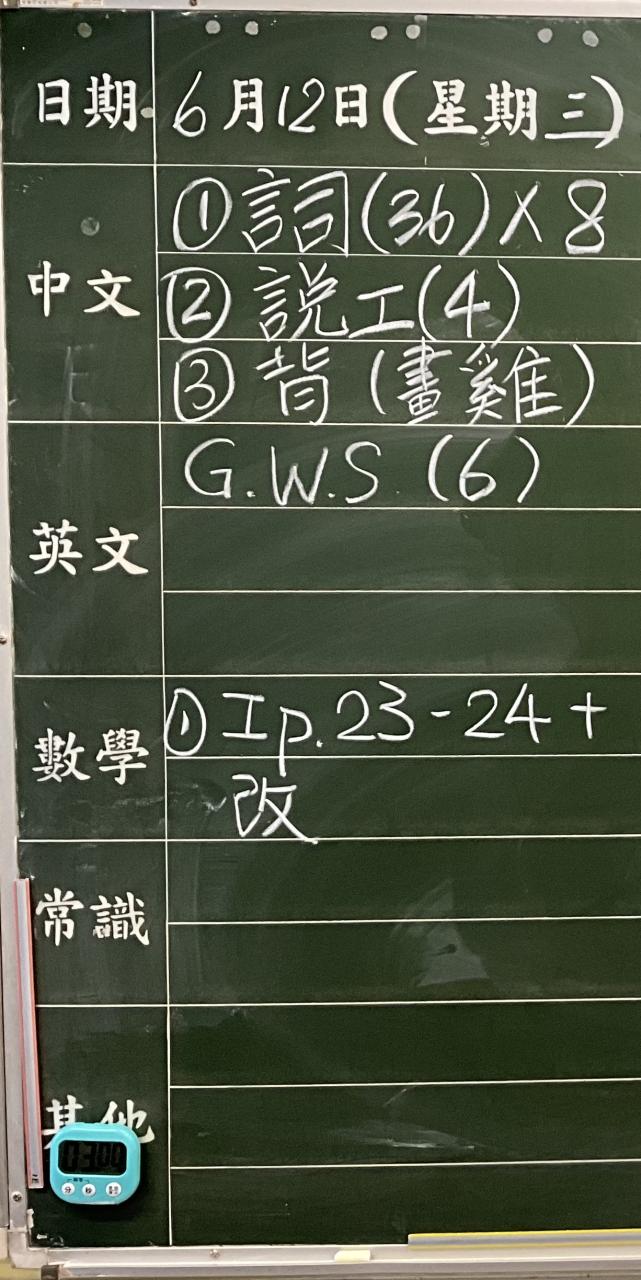 日期 6月12日(星期三)
中文
①詞(36)X8
②説工(4)
③背(畫雞)
英文
G.W.S.(6)
數學
①工p.23-24+
改
常識
其他
03:00
分 秒